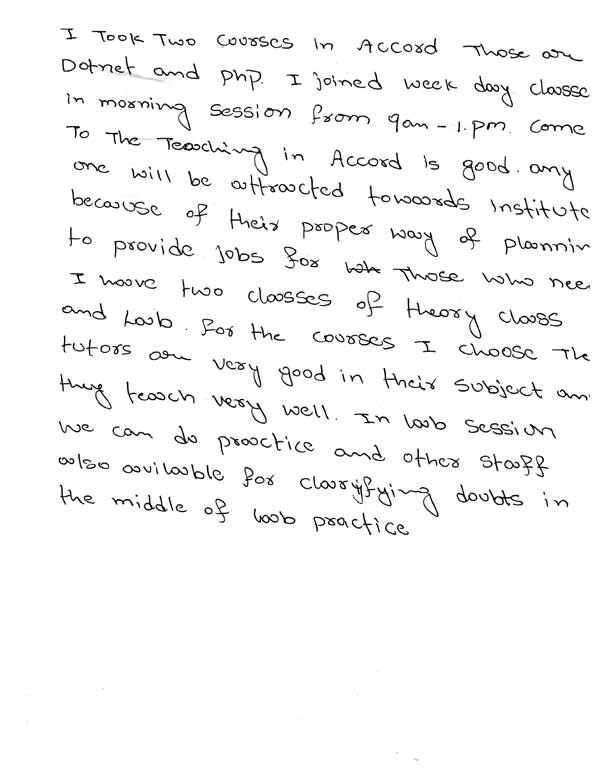 I Took Two courses in Accord Those are
Dotnet and php. I joined week day classe
in morning session from 9am - 1.pm. Come
To The Teaching in Accord is good. any
one will be attracted towards institute
because of their proper way of plannin
to provide jobs for Those who nee
I have two classes of theory class
and Lab. For the courses I choose The
tutors are very good in their subject an
they teach very well. In lab session
we can do practice and other staff
also avilable for clarifying doubts in
the middle of lab practice